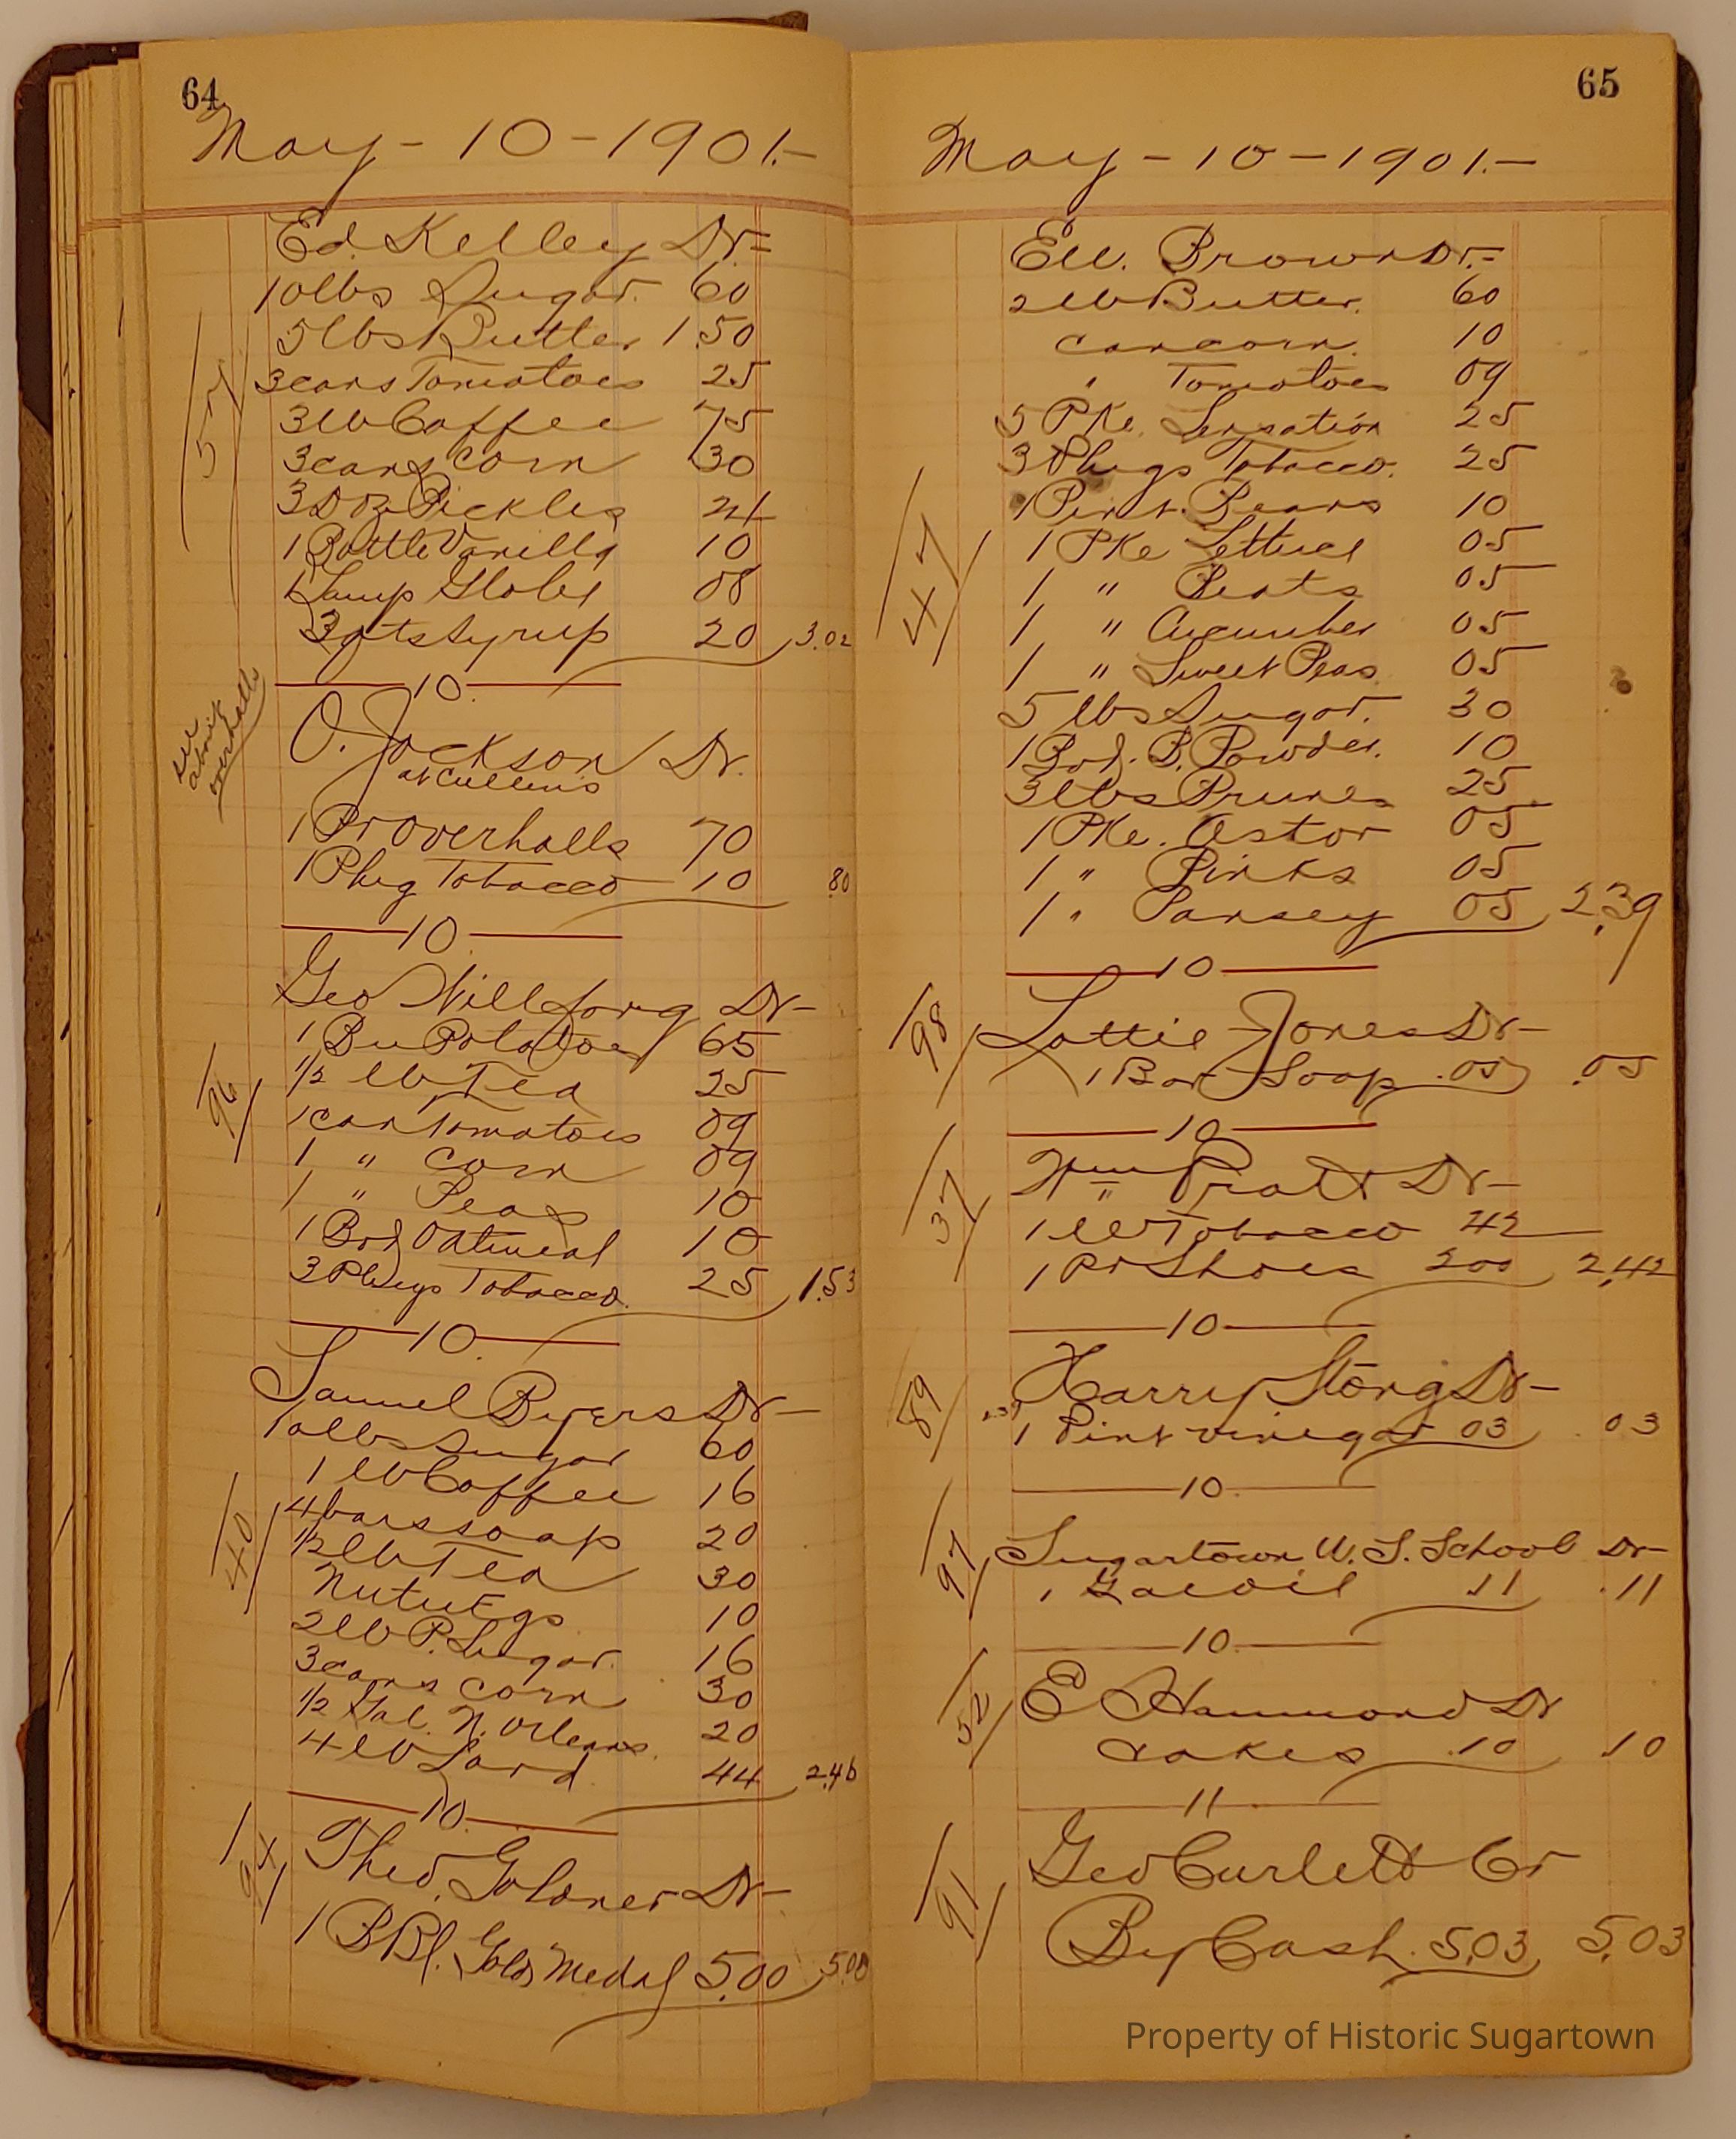 64
May - 10 - 1901.-
57
Ed. Kelley Dr.-
10 lbs Sugar. 60
5 lbs Butter 1.50
3 cans Tomatoes 25
3 lb Coffee 75
3 cans corn 30
3 Doz Pickles 24
1 Bottle Vanilla 10
1 Lamp Globe 08
3 qts Syrup 20 3.02
10.
see about overhalls
O. Jackson Dr.
at Cullens
1 Pr Overhalls 70
1 Plug Tobacco 10 .80
10
96
Geo Dr-
1 Bu Potatoes 65
1/2 lb Tea 25
1 can Tomatoes 09
1 " corn 09
1 " Peas 10
1 Box Oatmeal 10
3 Plugs Tobacco. 25 1.53
10.
40
Samuel Byers Dr-
10 lbs Sugar 60
1 lb Coffee 16
4 bars soap 20
1/2 lb Tea 30
10
2 lb P. Sugar. 16
3 cans corn 30
1/2 Gal. N. Orleans. 20
4 lb Lard 44 2.46
10
94
Theo. Goldner Dr-
1 BBl. Gold Medal 5.00 5.00
65
May - 10 - 1901.-
47
Brown Dr.-
2 lb Butter. 60
can corn. 10
" Tomatoes 09
5 PKe. Sensation 25
3 Plugs Tobacco. 25
1 Pint. Beans 10
1 PKe Lettuce 05
1 " Beats 05
1 " Cucumber 05
1 " Sweet Peas 05
5 lbs Sugar. 30
1 Box. B. Powder. 10
3 lbs Prunes 25
1 PKe. Astor 05
1 " Pinks 05
1 " Pansey 05 2.39
10
98
Lottie Jones Dr-
1 Bar Soap .05 .05
10
37
Wm Pratt Dr-
1 lb Tobacco 42
1 Pr Shoes 200 2.42
10
89
Harry Stong Dr-
1 Pint vinegar 03 .03
10
97
Sugartown U. S. School Dr-
1 Gal Oil 11 .11
10
52
E Hammond Dr
cakes .10 .10
11
91
Geo Curlett Cr
By Cash. 5.03 5.03
Property of Historic Sugartown